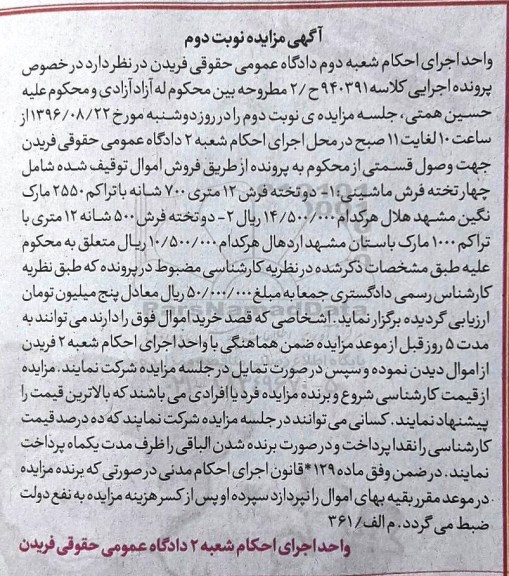 آگهی مزایده نوبت دوم
واحد اجرای احکام شعبه دوم دادگاه عمومی حقوقی فریدن در نظر دارد در خصوص
پرونده اجرایی کلاسه ۹۴۰۳۹۱ ح/۲ مطروحه بین محکوم له آزاد آزادی و محکوم علیه
حسین همتی، جلسه مزایده ی نوبت دوم را در روز دوشنبه مورخ ۱۳۹۶/۰۸/۲۲ از
ساعت ۱۰ لغایت ۱۱ صبح در محل اجرای احکام شعبه ۲ دادگاه عمومی حقوقی فریدن
جهت وصول قسمتی از محکوم به پرونده از طریق فروش اموال توقیف شده شامل
چهار تخته فرش ماشینی: ۱- دو تخته فرش ۱۲ متری ۷۰۰ شانه با تراکم ۲۵۵۰ مارک
نگین مشهد هلال هرکدام ۱۴/۵۰۰/۰۰۰ ریال ۲- دو تخته فرش ۵۰۰ شانه ۱۲ متری با
تراکم ۱۰۰۰ مارک باستان مشهد اردهال هرکدام ۱۰/۵۰۰/۰۰۰ ریال متعلق به محکوم
علیه طبق مشخصات ذکر شده در نظریه کارشناسی مضبوط در پرونده که طبق نظریه
کارشناس رسمی دادگستری جمعا به مبلغ ۵۰/۰۰۰/۰۰۰ ریال معادل پنج میلیون تومان
ارزیابی گردیده برگزار نماید. اشخاصی که قصد خرید اموال فوق را دارند می توانند به
مدت ۵ روز قبل از موعد مزایده ضمن هماهنگی با واحد اجرای احکام شعبه ۲ فریدن
از اموال دیدن نموده و سپس در صورت تمایل در جلسه مزایده شرکت نمایند. مزایده
از قیمت کارشناسی شروع و برنده مزایده فرد یا افرادی می باشند که بالاترین قیمت را
پیشنهاد نمایند. کسانی می توانند در جلسه مزایده شرکت نمایند که ده درصد قیمت
کارشناسی را نقدا پرداخت و در صورت برنده شدن الباقی را ظرف مدت یکماه پرداخت
نمایند. در ضمن وفق ماده ۱۲۹* قانون اجرای احکام مدنی در صورتی که برنده مزایده
در موعد مقرر بقیه بهای اموال را نپردازد سپرده او پس از کسر هزینه مزایده به نفع دولت
ضبط می گردد. م الف/۳۶۱
واحد اجرای احکام شعبه ۲ دادگاه عمومی حقوقی فریدن